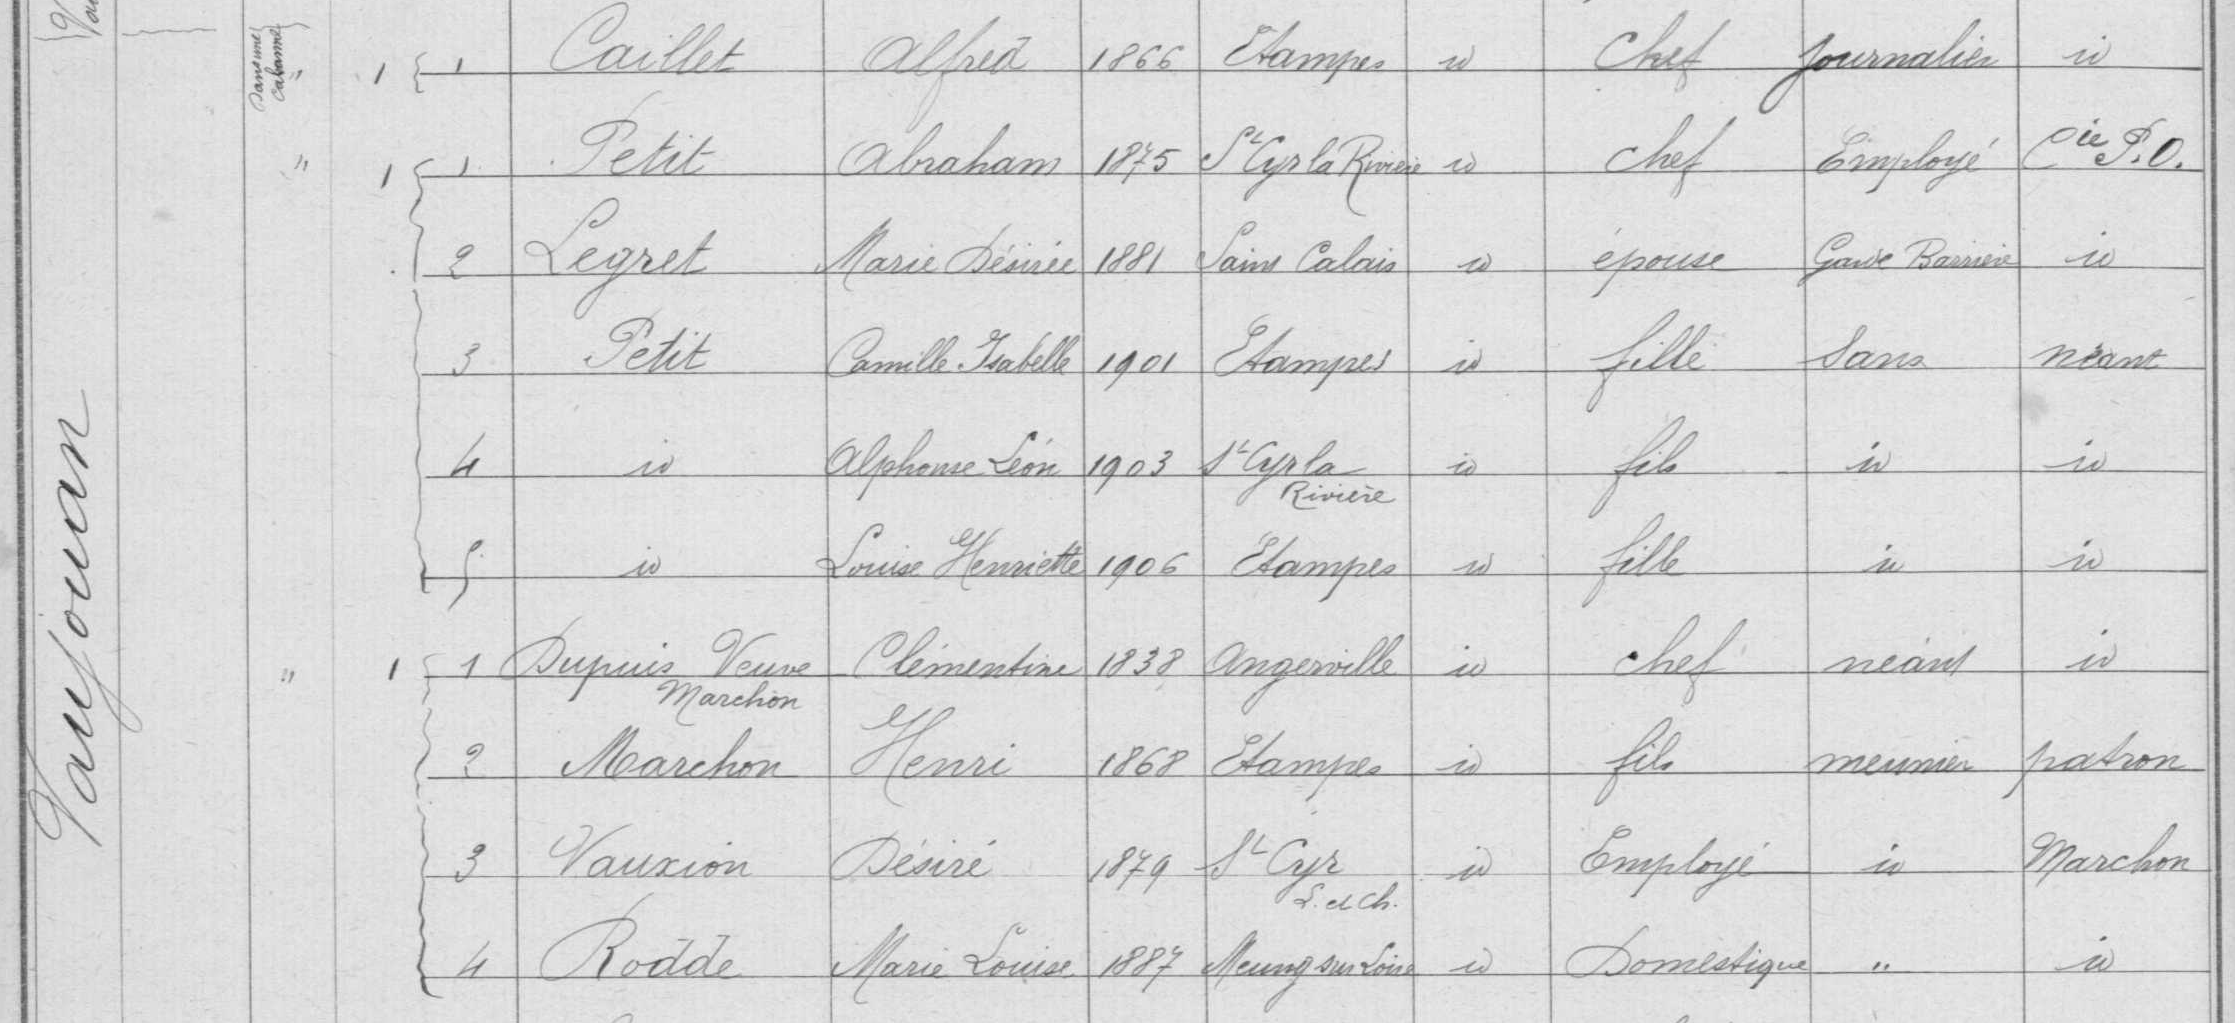 Vaujouan
Dans une cabanne
" 1 1 Caillet Alfred 1866 Etampes id Chef journalier id
" 1 1 Petit Abraham 1875 St Cyr la Rivière id chef Employé Cie P.O.
2 Legret Marie Désirée 1881 Saint Calais id épouse Garde Barrière id
3 Petit Camille Isabelle 1901 Etampes id fille Sans néant
4 id Alphonse Léon 1903 St Cyr la Rivière id fils id id
5 id Louise Henriette 1906 Etampes id fille id id
" 1 1 Dupuis Veuve Marchon Clémentine 1838 Angerville id chef néant id
2 Marchon Henri 1868 Etampes id fils meunier patron
3 Vauxion Désiré 1879 St Cyr L. et Ch. id Employé id Marchon
4 Rodde Marie Louise 1887 Meung sur Loire id Domestique " id